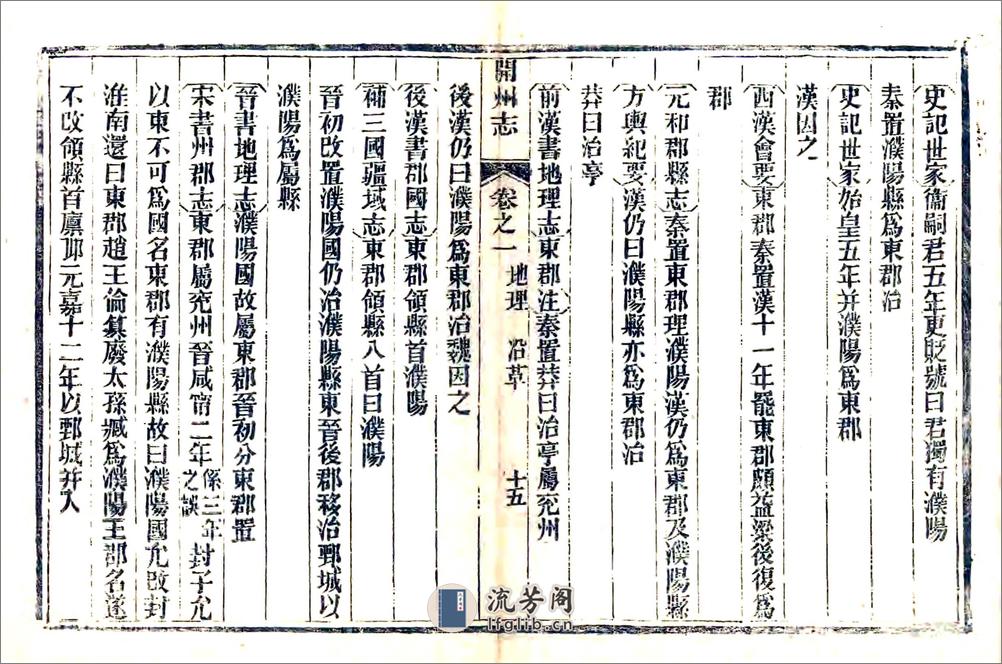 史記世家衞嗣君五年更貶號曰君獨有濮陽
秦置濮陽縣爲東郡治
史記世家始皇五年并濮陽爲東郡
漢因之
西漢會要東郡秦置漢十一年罷東郡頗益梁後復爲
郡
元和郡縣志秦置東郡理濮陽漢仍爲東郡及濮陽縣
方輿紀要漢仍曰濮陽縣亦爲東郡治
莽曰治亭
前漢書地理志東郡注秦置莽曰治亭屬兖州
開州志 卷之一 地理 沿革 十五
後漢仍曰濮陽爲東郡治魏因之
後漢書郡國志東郡領縣首濮陽
補三國疆域志東郡領縣八首曰濮陽
晉初改置濮陽國仍治濮陽縣東晉後郡移治鄄城以
濮陽爲屬縣
晉書地理志濮陽國故屬東郡晉初分東郡置
宋書州郡志東郡屬兖州晉咸甯二年係三年之誤封子允
以東不可爲國名東郡有濮陽縣故曰濮陽國允改封
淮南還曰東郡趙王倫篡廢太孫臧爲濮陽王郡名遂
不改領縣首廪邱元嘉十二年以鄄城并入
流芳阁
lfglib.cn